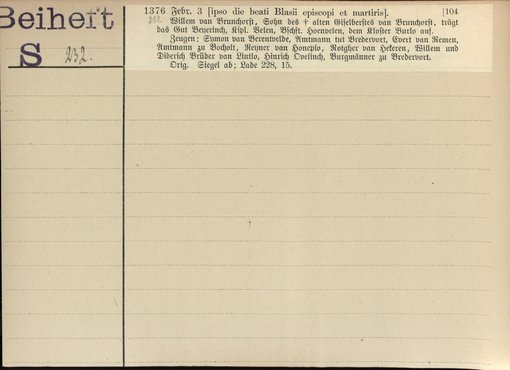 Beiheft
S 232.
1376 Febr. 3 [ipso die beati Blasii episcopi et martiris]. [104
Willem van Brunchorst, Sohn des † alten Giselberstes van Brunchorst, trägt
das Gut Beyerinch, Kspl. Velen, Bschft. Hoenvelen, dem Kloster Burlo auf.
Zeugen: Symon van Berentvelde, Amtmann tut Bredervort, Evert van Remen,
Amtmann zu Bocholt, Reyner van Honeplo, Rotgher van Hekeren, Willem und
Diderich Brüder van Lintlo, Hinrich Ovelinch, Burgmänner zu Bredervort.
Orig. Siegel ab; Lade 228, 15.